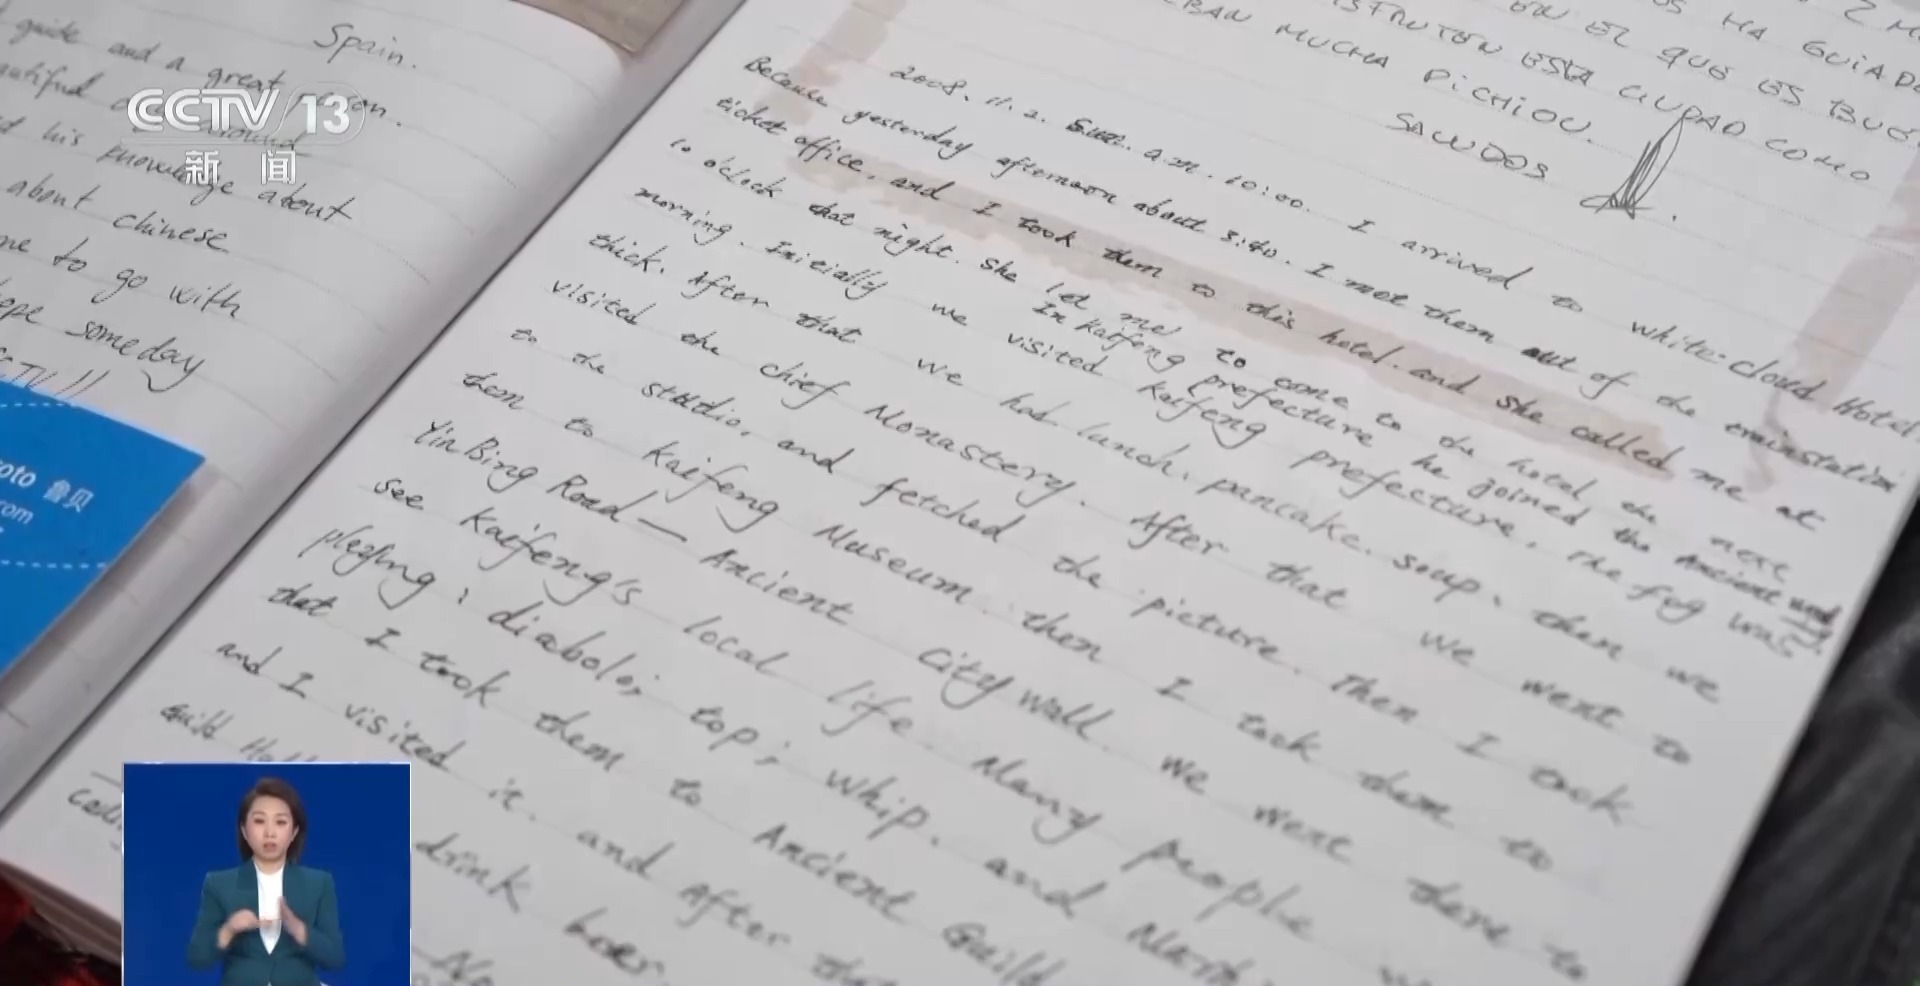 Spain.
guide and a great
his knowledge about
about chinese
me to go with
someday
CCTV 13
新闻
鲁贝
com
HA GUIADO
EN EL QUE ES
ESTA CIUDAD COMO
MUCHA PICHIOU.
SALUDOS
2008. 11. 2. Sun. a.m. 10:00. I arrived to white-cloud Hotel.
Because yesterday afternoon about 3:40. I met them out of the trainstation
ticket office. and I took them to this hotel. and she called me at
10 o'clock that night. she let me to come to the hotel the next
In Kaifeng prefecture he joined the Ancient
morning. Initially we visited Kaifeng prefecture. The fog was
thick. After that we had lunch. pancake. soup. then we
visited the chief Monastery. After that we went to
to the studio. and fetched the picture. Then I took
them to Kaifeng Museum. then I took them to
YinBing Road — Ancient City wall. we went there to
see Kaifeng's local life. Many people
playing: diabolo; top; whip. and
that I took them to Ancient Guild
and I visited it. and After that
Guild
drink beer.